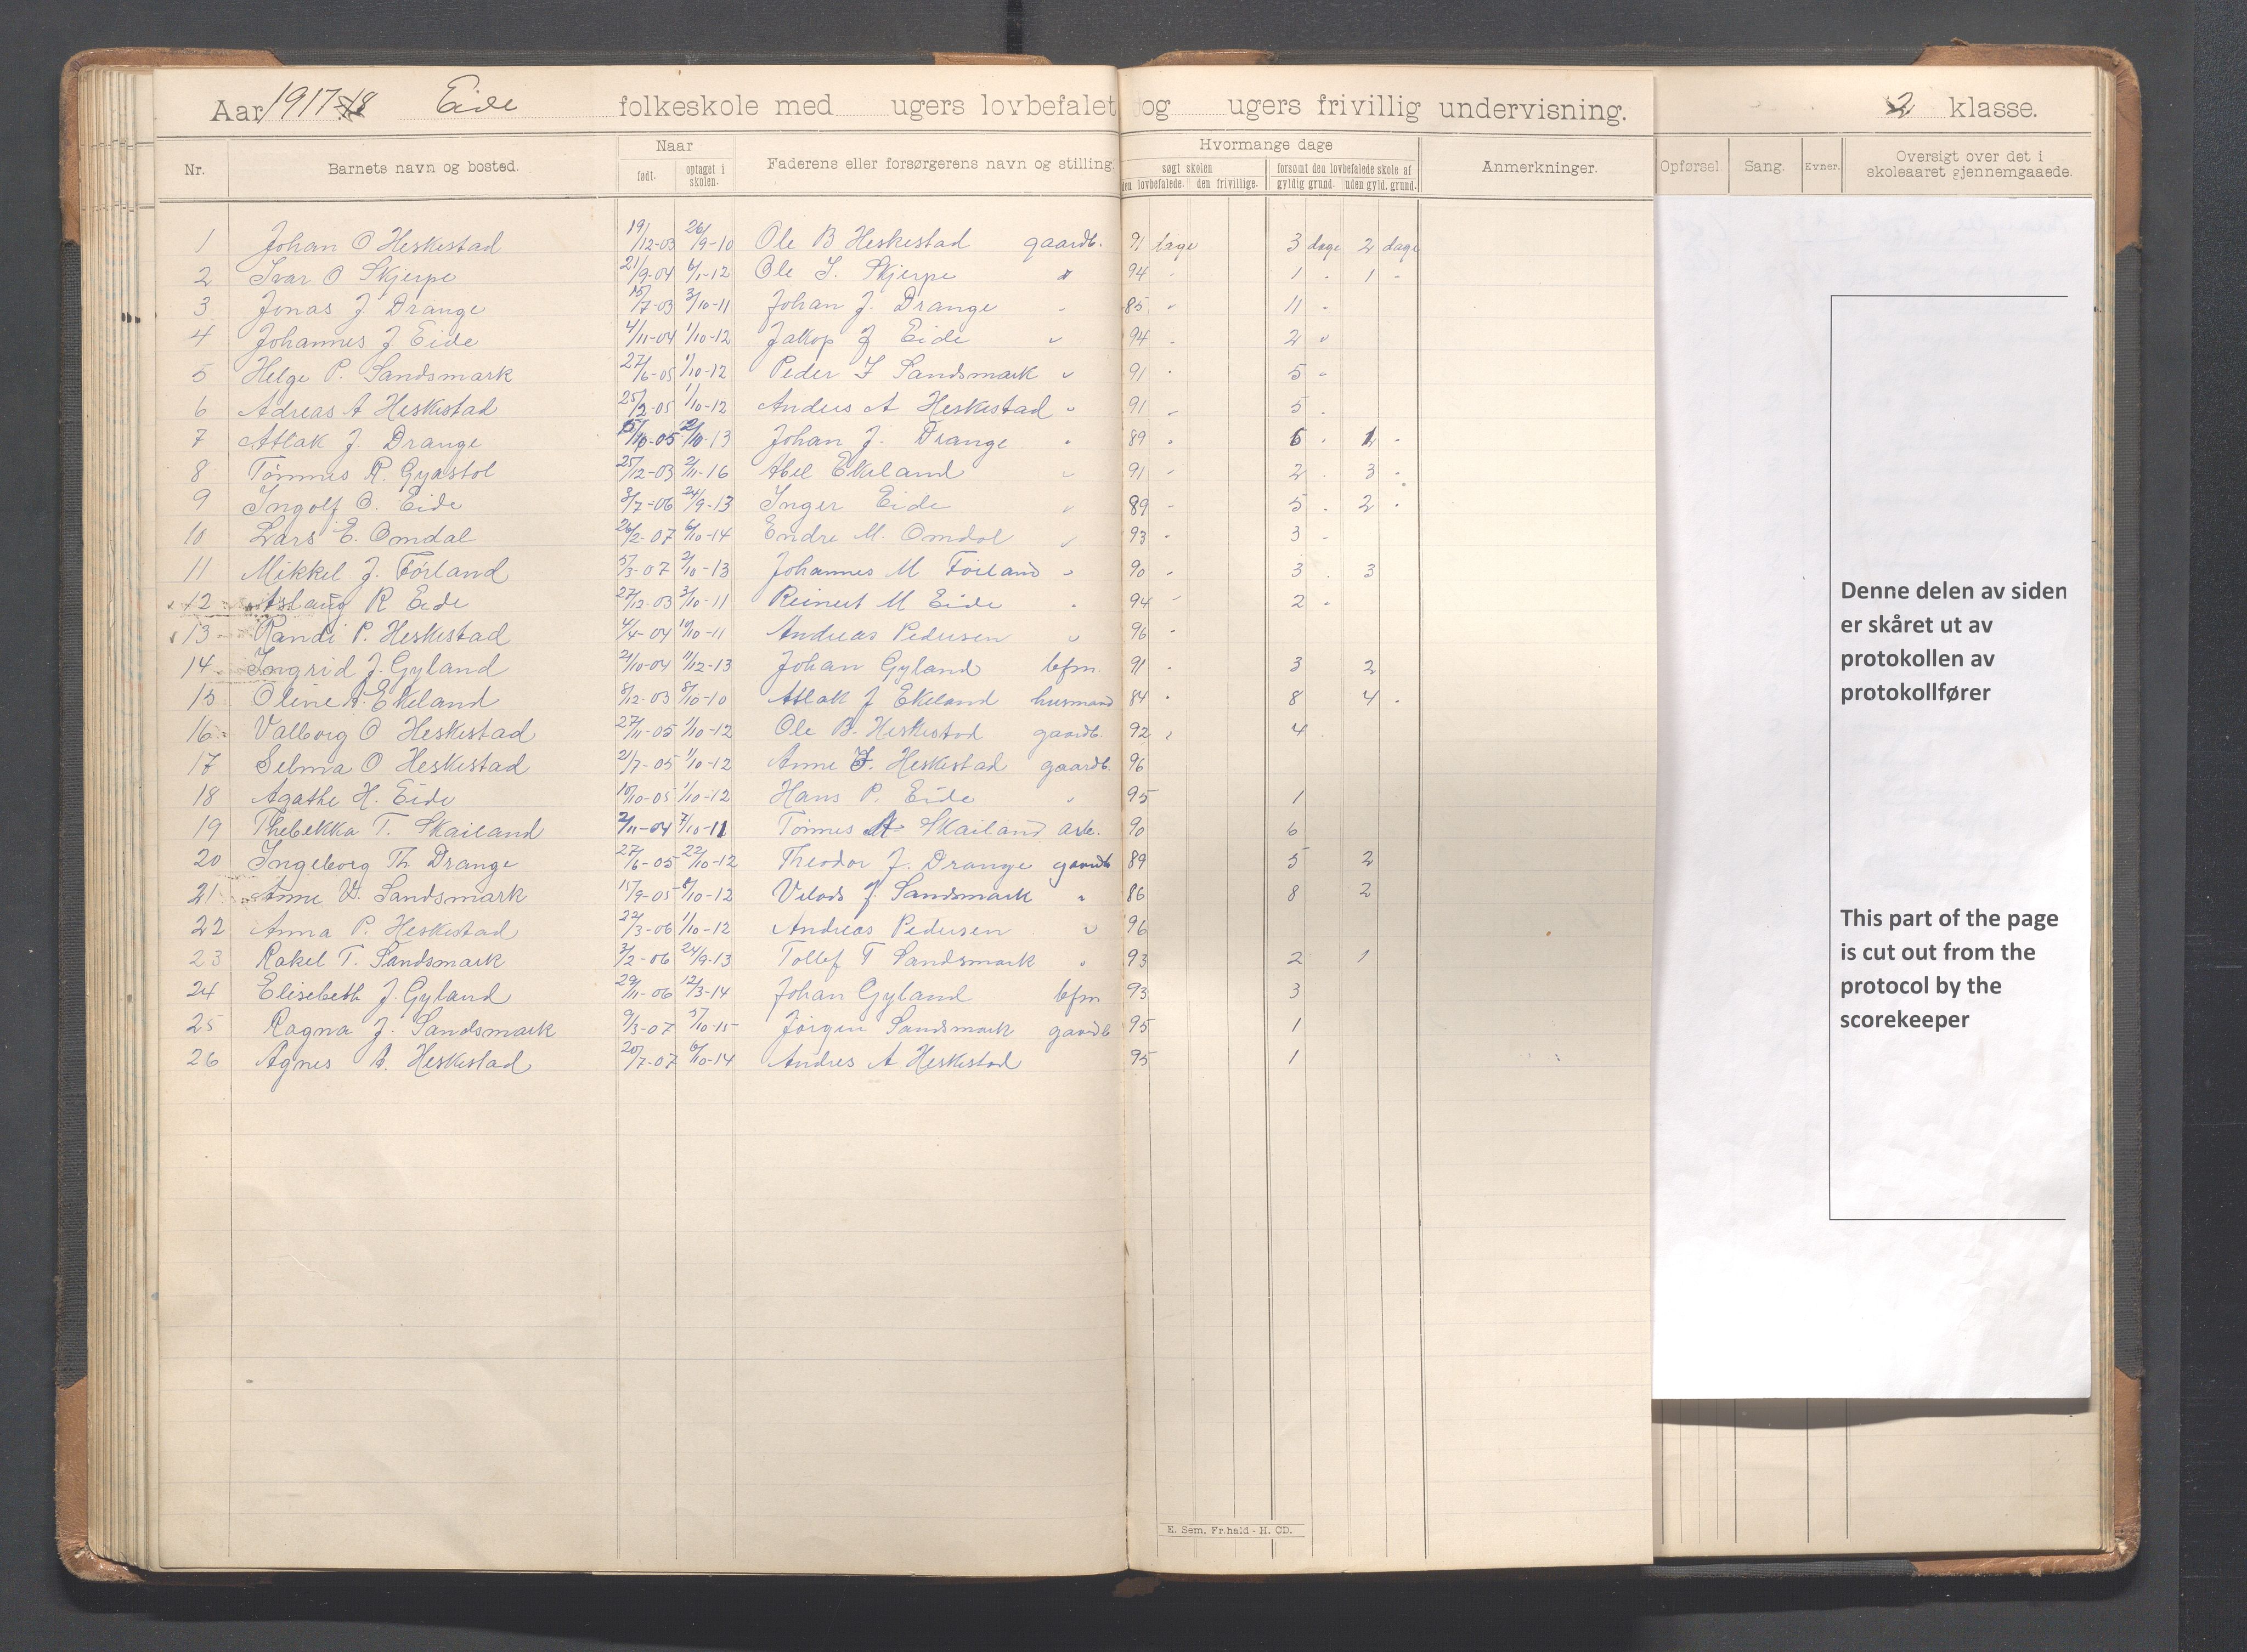 Aar 1917-18 Eide folkeskole med ugers lovbefalet og ugers frivillig undervisning. 2 klasse.
Nr. Barnets navn og bosted. Naar født. optaget i skolen. Faderens eller forsørgerens navn og stilling. Hvormange dage søgt skolen den lovbefalede. den frivillige. forsømt den lovbefalede skole af gyldig grund. uden gyld. grund. Anmerkninger. Opførsel. Sang. Evner. Oversigt over det i skoleaaret gjennemgaaede.
1 Johan O Heskestad 19/12-03 26/9-10 Ole B Heskestad gaardb. 91 dage 3 dage 2 dage
2 Ivar O Skjerpe 21/9-04 6/1-12 Ole I. Skjerpe " 94 " 1 " 1 "
3 Jonas J Drange 15/7-03 3/10-11 Johan J. Drange " 85 " 11 "
4 Johannes J Eide 4/11-04 1/10-12 Jakop J Eide " 94 " 2 "
5 Helge P. Sandsmark 27/6-05 1/10-12 Peder I Sandsmark " 91 " 5 "
6 Adreas A Heskestad 25/2-05 1/10-12 Anders A Heskestad " 91 " 5 "
7 Atlak J. Drange 10-05 10-13 Johan J. Drange " 89 " 6 " 1 "
8 Tønnes R. Gyastøl 25/12-03 2/11-16 Abel Ekeland " 91 " 2 3 "
9 Ingolf O. Eide 8/7-06 24/9-13 Inger Eide " 89 " 5 " 2 "
10 Lars E. Omdal 26/2-07 6/10-14 Endre M. Omdal " 93 " 3 "
11 Mikkel J. Førland 5/3-07 2/10-13 Johannes M Førland " 90 " 3 " 3
12 Aslaug R Eide 27/12-03 3/10-11 Reinert M Eide " 94 " 2 "
13 Randi P. Heskestad 4/4-04 10/10-11 Andreas Pedersen " 96 "
14 Ingrid J. Gyland 21/10-04 11/12-13 Johan Gyland bfm. 91 " 3 2
15 Oline A. Ekeland 8/12-03 8/10-10 Atlak J Ekeland husmand 84 " 8 4 "
16 Valborg O Heskestad 27/11-05 1/10-12 Ole B. Heskestad gaardb. 92 " 4
17 Selma O Heskestad 21/7-05 1/10-12 Anne Heskestad gaardb. 96
18 Agathe H. Eide 10/10-05 1/10-12 Hans P. Eide " 95 1
19 Thebekka T. Skailand 2/11-04 7/10-11 Tønnes A Skailand arb. 90 6
20 Ingeborg Th. Drange 27/6-05 22/10-12 Theodor J. Drange gaardb 89 5 2
21 Anne V. Sandsmark 15/9-05 10-12 J. Sandsmark " 86 8 2
22 Anna P. Heskestad 22/3-06 1/10-12 Andreas Pedersen " 96
23 Rakel T. Sandsmark 3/2-06 24/9-13 Tollef T Sandsmark " 93 2 1
24 Elisebeth J. Gyland 29/11-06 12/3-14 Johan Gyland bfm 93 3
25 Ragna J. Sandsmark 9/3-07 5/10-15 Jørgen Sandsmark gaardb 95 1
26 Agnes A. Heskestad 20/7-07 6/10-14 Andres A Heskestad 95 1
E. Sem, Fr.hald - H. CD.
Denne delen av siden
er skåret ut av
protokollen av
protokollfører
This part of the page
is cut out from the
protocol by the
scorekeeper